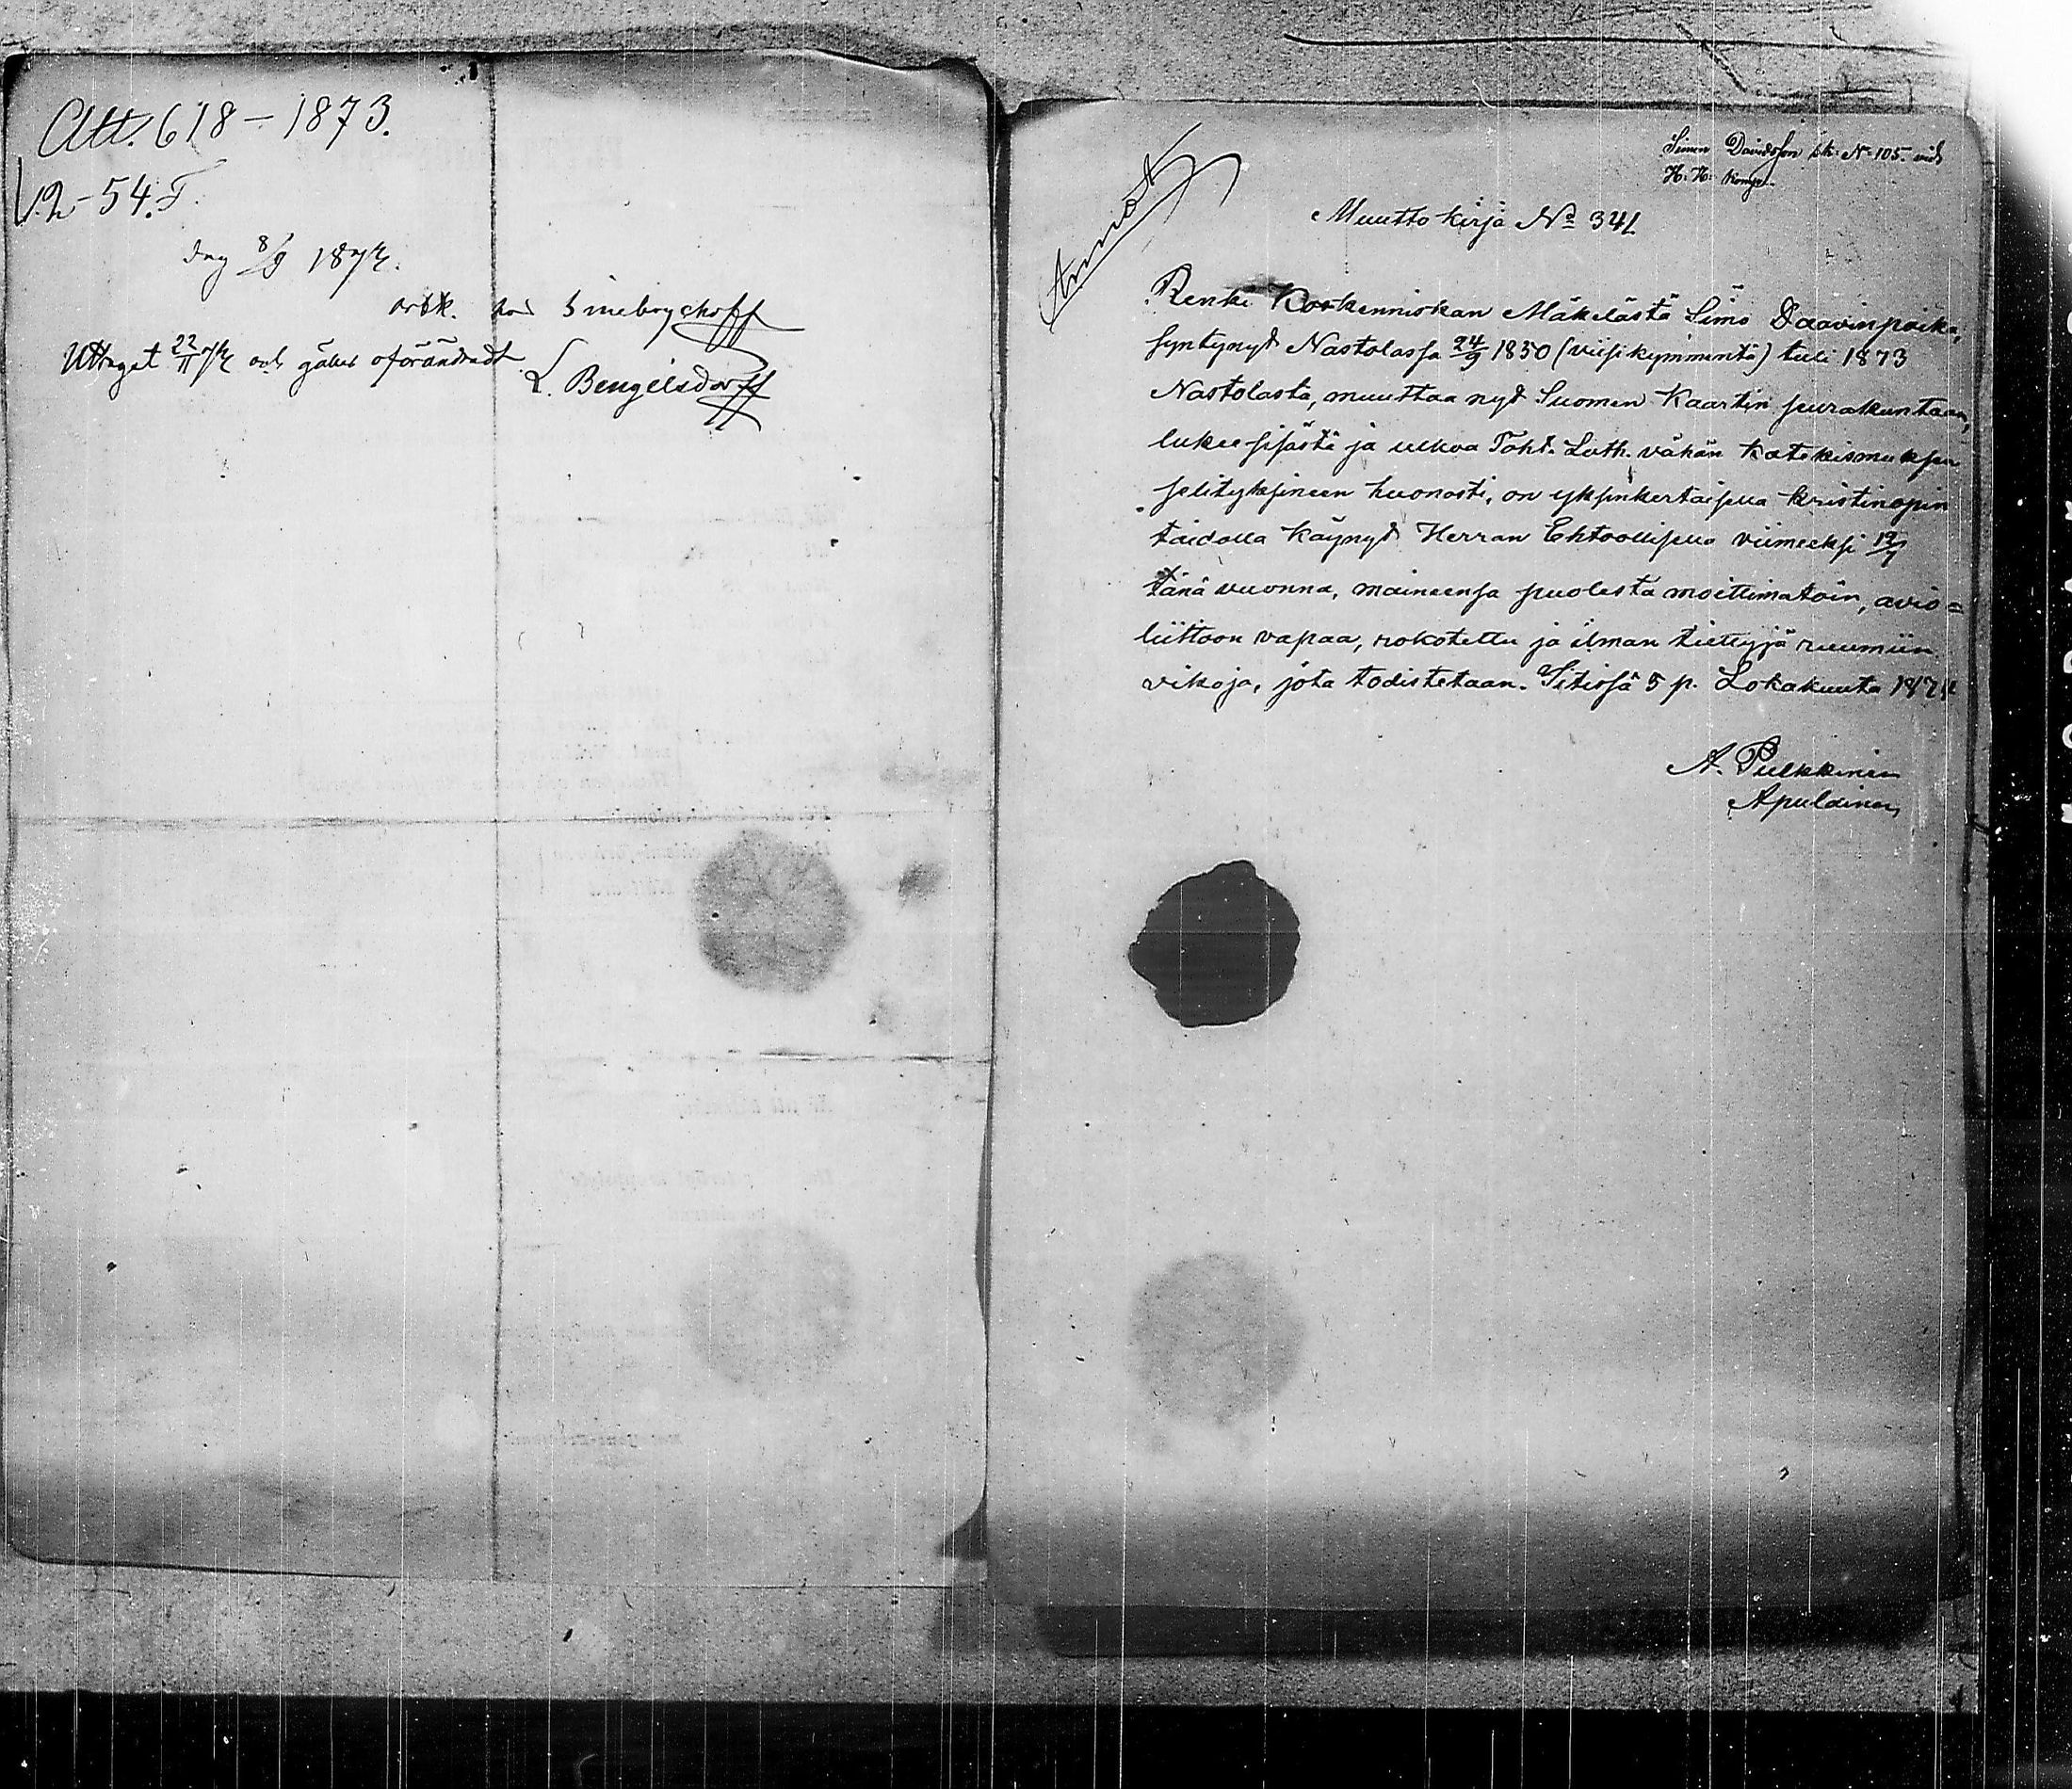 Att. 618 - 1873.
V. 2 - 54. F.
dag 8/9 1874.
arbk. hos Sinebrychoff
Uttaget 22/11 74 och gäller oförändradt
L. Bengelsdorff
Simon Davidsson sk. N. 105. vid
H. H. Komp.
Muutto kirja No 341
Renki Koskenniskan Mäkelästä Simo Daavinpoika,
syntynyt Nastolassa 24/9 1850 (viisikymmentä) tuli 1873
Nastolasta, muuttaa nyt Suomen Kaartin seurakuntaan,
lukee sisästä ja ulkoa Toht. Luth. vähän katekismuksen
selityksineen huonosti, on yksinkertaisella kristinopin
taidolla käynyt Herran Ehtoollisella viimeeksi 19/7
tänä vuonna, maineensa puolesta moittimatoin, avio=
liittoon vapaa, rokotettu ja ilman tiettyjä ruumiin
vikoja, jota todistetaan. Sitissä 5 p. Lokakuuta 1874
A. Pulkkinen
Apulainen